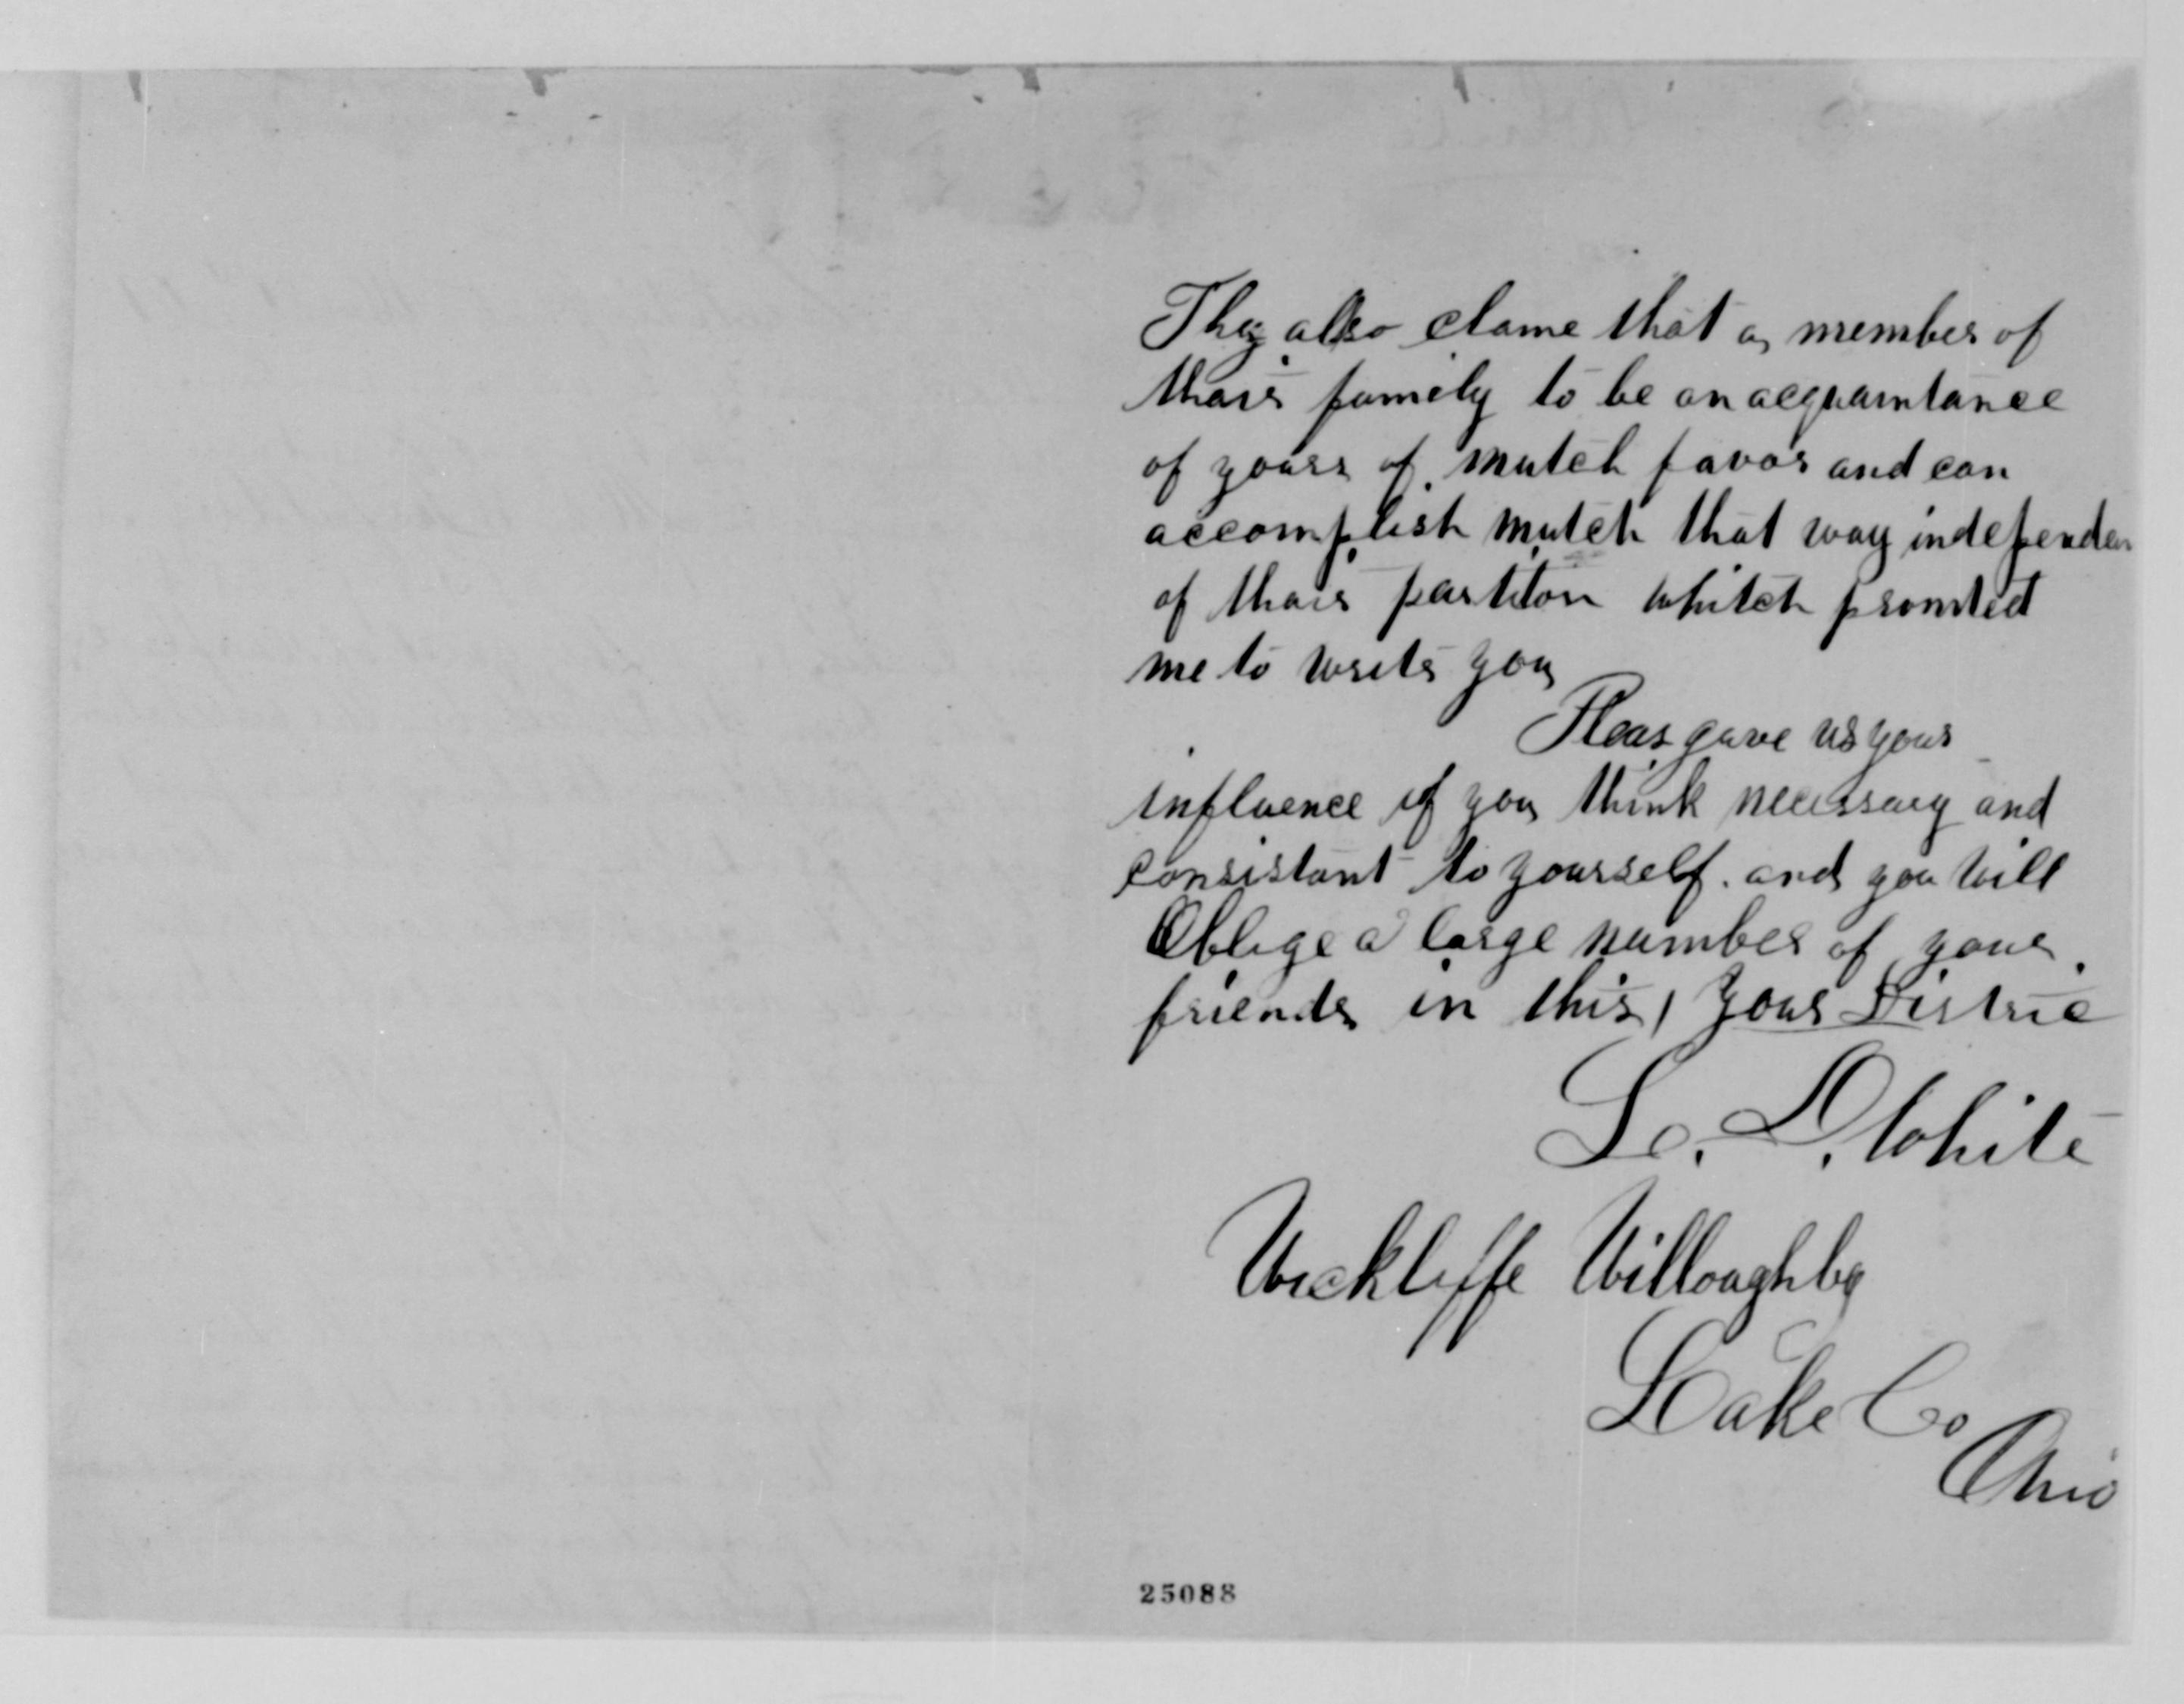 They also clame that a member of
thair famely to be an acquaintance
of yours of mutch favor and can
accomplish mutch that way independen
of thair partition whitch promted
me to write you
Pleas gave us your
influence if you think necessary and
consistant to yourself. and you will
Oblige a large number of your
friends in this, your Distric
L. D. White
Wickliffe Willoughby
Lake Co
Ohio
25088